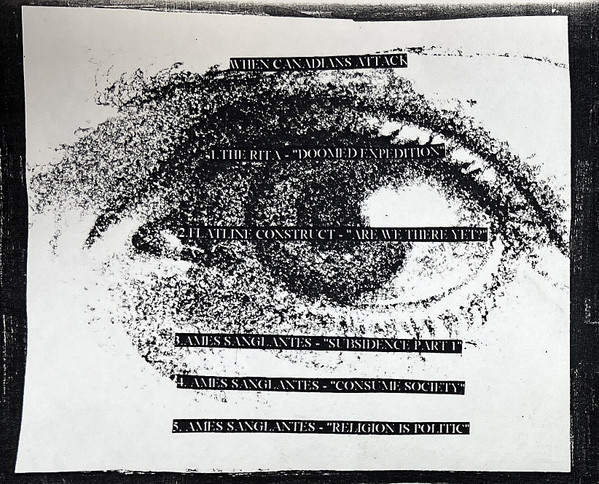 WHEN CANADIANS ATTACK
1. THE RITA - "DOOMED EXPEDITION"
2. FLATLINE CONSTRUCT - "ARE WE THERE YET?"
3. AMES SANGLANTES - "SUBSIDENCE PART 1"
4. AMES SANGLANTES - "CONSUME SOCIETY"
5. AMES SANGLANTES - "RELIGION IS POLITIC"